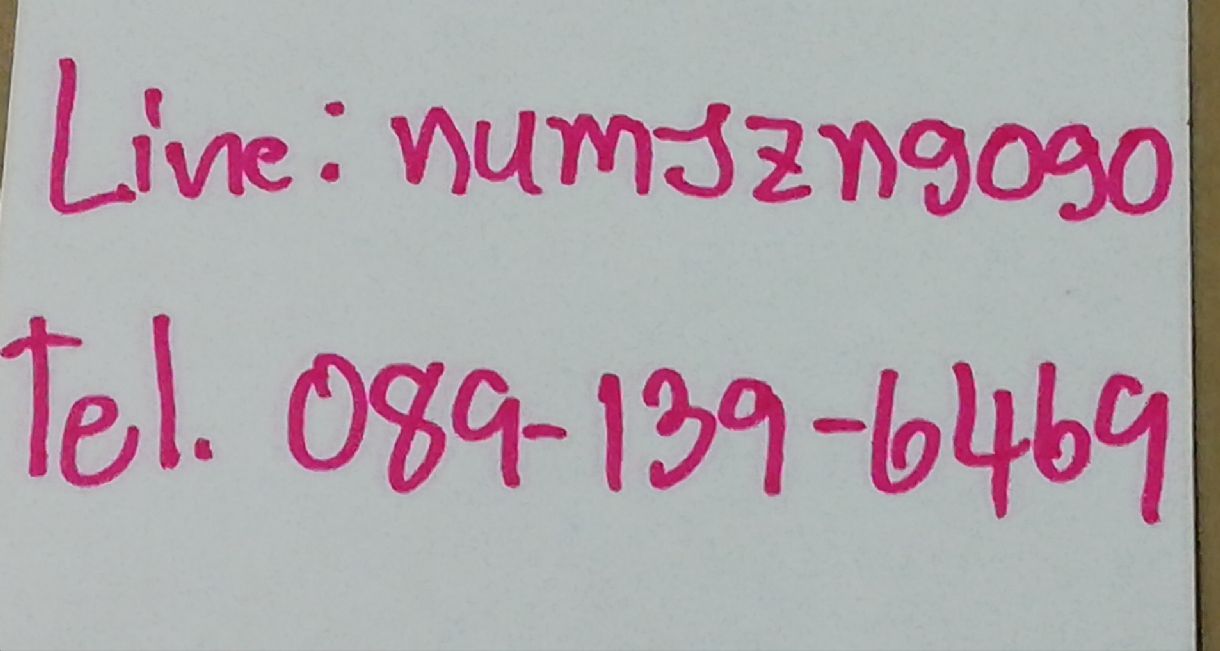 Line: numszngogo
Tel. 089-139-6469